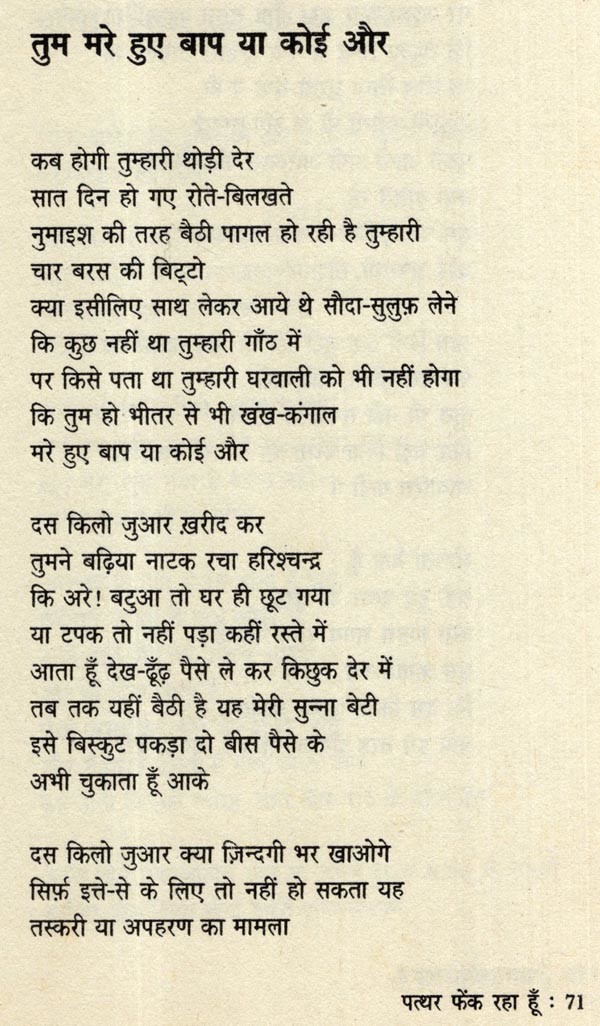 तुम मरे हुए बाप या कोई और
कब होगी तुम्हारी थोड़ी देर
सात दिन हो गए रोते-बिलखते
नुमाइश की तरह बैठी पागल हो रही है तुम्हारी
चार बरस की बिट्टो
क्या इसीलिए साथ लेकर आये थे सौदा-सुलुफ़ लेने
कि कुछ नहीं था तुम्हारी गाँठ में
पर किसे पता था तुम्हारी घरवाली को भी नहीं होगा
कि तुम हो भीतर से भी खंख-कंगाल
मरे हुए बाप या कोई और
दस किलो जुआर ख़रीद कर
तुमने बढ़िया नाटक रचा हरिश्चन्द्र
कि अरे! बटुआ तो घर ही छूट गया
या टपक तो नहीं पड़ा कहीं रस्ते में
आता हूँ देख-ढूँढ़ पैसे ले कर किछुक देर में
तब तक यहीं बैठी है यह मेरी सुन्ना बेटी
इसे बिस्कुट पकड़ा दो बीस पैसे के
अभी चुकाता हूँ आके
दस किलो जुआर क्या ज़िन्दगी भर खाओगे
सिर्फ़ इत्ते-से के लिए तो नहीं हो सकता यह
तस्करी या अपहरण का मामला
पत्थर फेंक रहा हूँ : 71